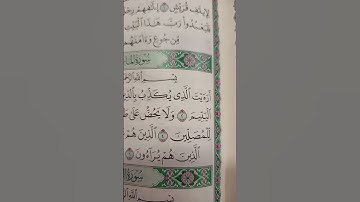 لِإِيلَٰفِ قُرَيْشٍ ١ إِۦلَٰفِهِمْ
فَلْيَعْبُدُوا۟ رَبَّ هَٰذَا ٱلْبَيْتِ
مِّن جُوعٍ وَءَامَنَهُم
سُورَةُ
بِسْمِ ٱللَّهِ
أَرَءَيْتَ ٱلَّذِى يُكَذِّبُ
ٱلْيَتِيمَ ٢ وَلَا يَحُضُّ عَلَىٰ
لِّلْمُصَلِّينَ ٤ ٱلَّذِينَ هُمْ
ٱلَّذِينَ هُمْ يُرَآءُونَ ٦
سُورَةُ
بِسْمِ ٱللَّهِ